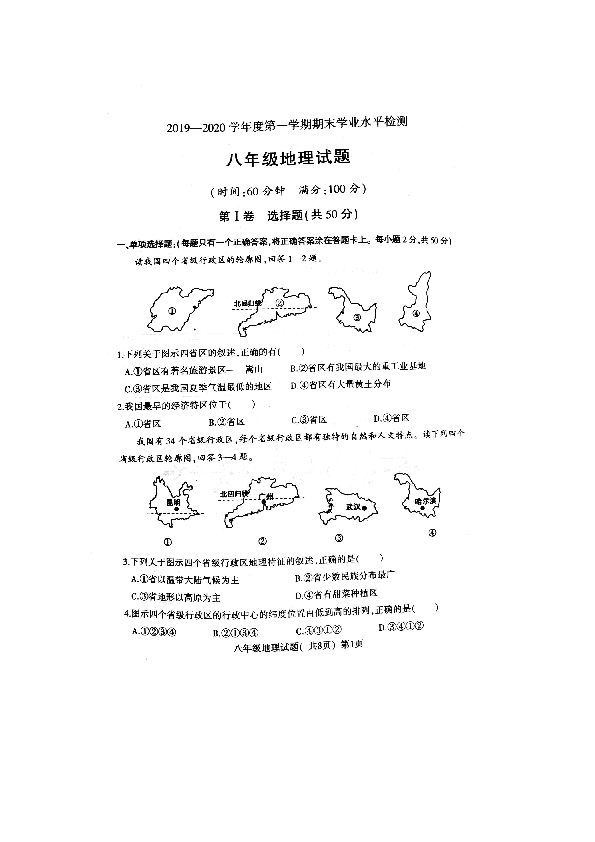 2019—2020 学年度第一学期期末学业水平检测
八年级地理试题
(时间:60 分钟 满分:100 分)
第 I 卷 选择题(共 50 分)
一、单项选择题:(每题只有一个正确答案,将正确答案涂在答题卡上。每小题 2 分,共 50 分)
读我国四个省级行政区的轮廓图,回答 1—2 题。
① 北回归线 ② ③ ④
1.下列关于图示四省区的叙述,正确的有( )
A.①省区有著名旅游景区— 嵩山 B.②省区有我国最大的重工业基地
C.③省区是我国夏季气温最低的地区 D.④省区有大量黄土分布
2.我国最早的经济特区位于( )
A.①省区 B.②省区 C.③省区 D.④省区
我国有 34 个省级行政区,每个省级行政区都有独特的自然和人文特点。读下列四个
省级行政区轮廓图,回答 3—4 题。
昆明 北回归线 广州 武汉 哈尔滨
① ② ③ ④
3.下列关于图示四个省级行政区地理特征的叙述,正确的是( )
A.①省以温带大陆气候为主 B.②省少数民族分布最广
C.③省地形以高原为主 D.④省有甜菜种植区
4.图示四个省级行政区的行政中心的纬度位置由低到高的排列,正确的是( )
A.①②③④ B.②①③④ C.④③①② D.③④①②
八年级地理试题( 共8页) 第1页